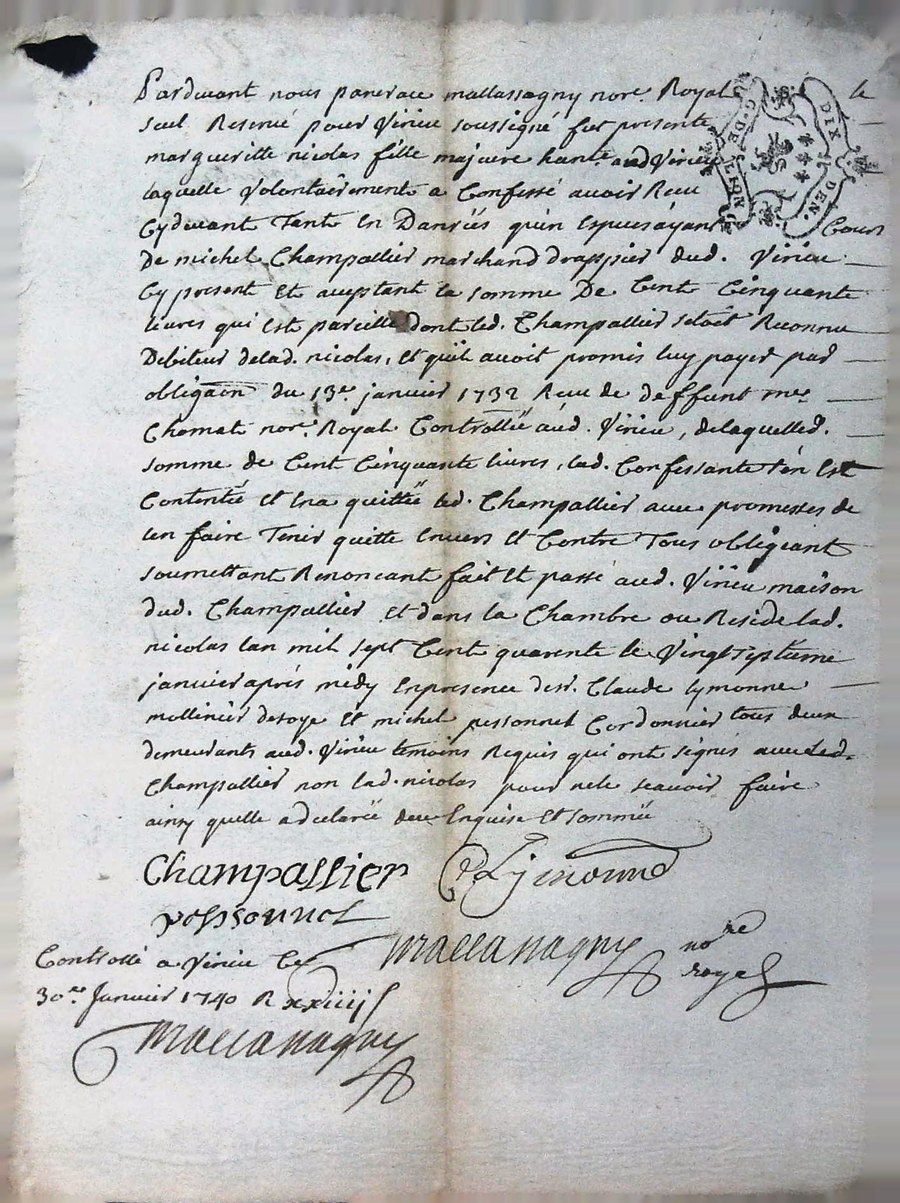 Pardevant nous pancrace mallassagny nore. Royal le
seul Reservé pour Virieu soussigné fut presente
margueritte nicolas fille majeure hante. aud Virieu
laquelle volontairement a Confessé avoir Receu
Cydevant Tent en Danrëës qu'en Espuces ayant Cours
De michel Champallier marchand drappier dud. Virieu
Cy present Et aceptant la somme De Cent Cinquante
livres qui Est pareille dont led. Champallier sétoit Reconnu
Debiteur delad. nicolas, et quil avoit promis luy payer par
obligaôn du 13e. janvier 1732 Receu de deffunt me.
Chomat nore. Royal Controllëë aud. Virieu, delaquelled.
somme de Cent Cinquante livres, lad. Confessante s'en Est
Contentëë Et Ena quittëë led. Champallier avec promesses de
len faire Tenir quitte Envers Et Contre Tous obligeant
soumettant Renonceant fait Et passé aud. Virieu maison
dud. Champallier et dans la Chambre ou Reside lad.
nicolas lan mil sept Cent quarente le Vingt septieme
janvier aprés midy Enpresence desr. Claude lymonne
mollinier desoye Et michel pessonnel Cordonnier tous deux
demeurants aud. Virieu temoins Requis qui ont signés avec Led.
Champallier non lad. nicolas pour ne le scavoir faire
ainsy quelle adeclarëë dece Enquise Et sommëë
G. DE DIX DEN.
Champallier C Lymonne
possonnel
Mallassagny nore
royal
Controllé a Virieu le
30e. Janvier 1740 R xxiiij s
Mallassagny